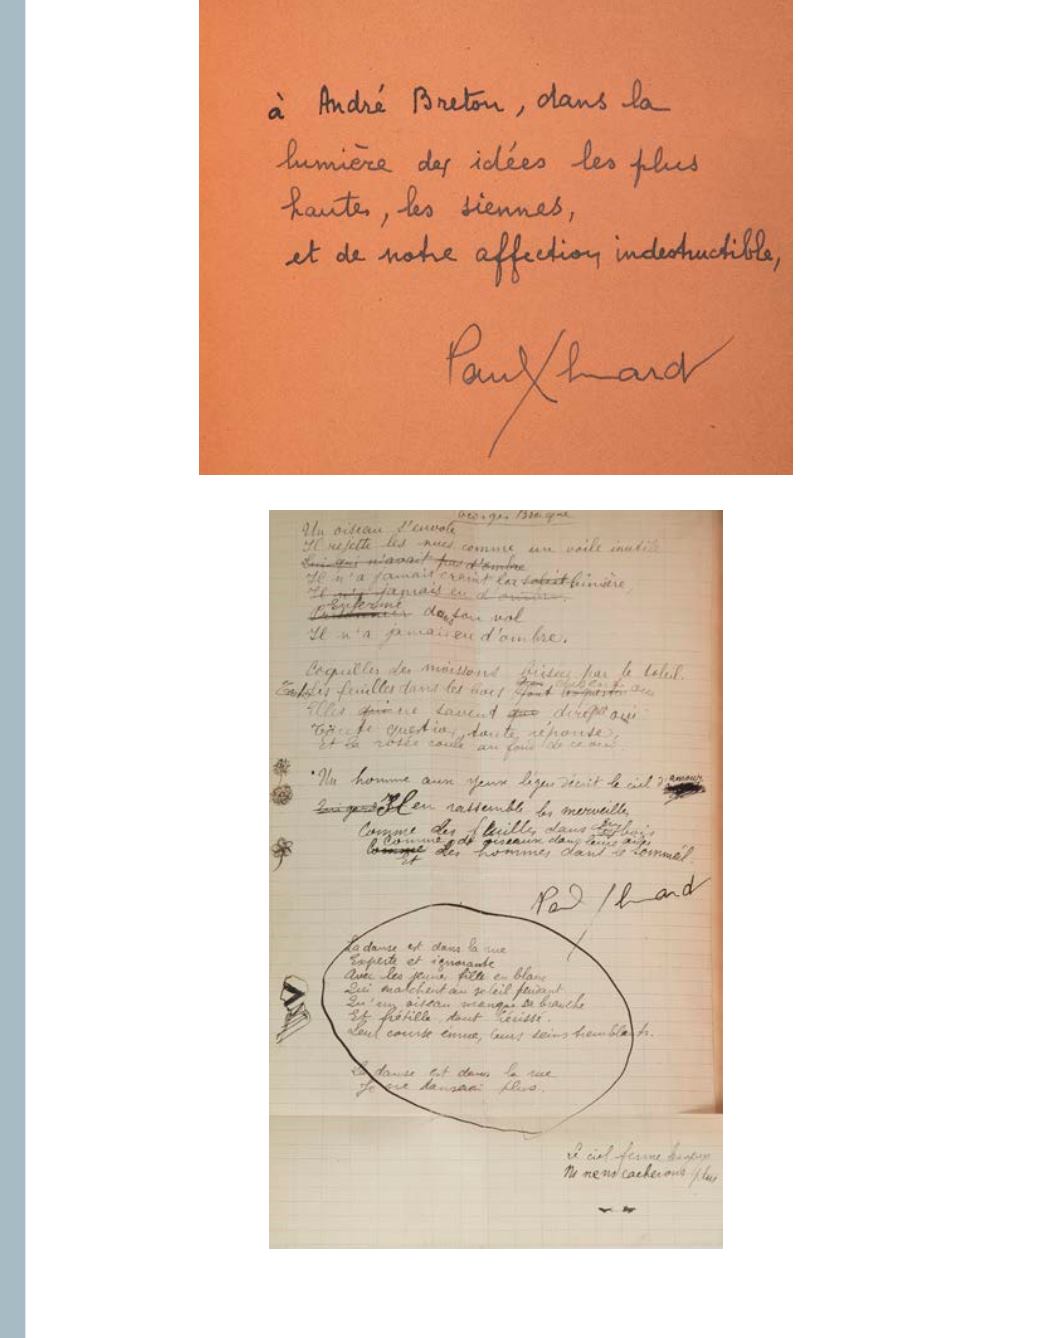 à André Breton, dans la
lumière des idées les plus
hautes, les siennes,
et de notre affection indestructible,
Paul Eluard
Georges Braque
Un oiseau s'envole,
Il rejette les nues comme un voile inutile
Lui qui n'avait pas d'ombre
Il n'a jamais craint la soleil lumière,
Il n'a jamais eu d'ombre.
Prisonnier Enfermé dans son vol
Il n'a jamais eu d'ombre.
Coquilles des moissons brisées par le soleil.
Toutes les feuilles dans les bois disent oui
Elles ne savent que dire oui
Toute question, toute réponse,
Et la rosée coule au fond de ce oui.
Un homme aux yeux légers décrit le ciel d'amour.
Il en rassemble les merveilles
Comme des feuilles dans un bois
Comme des oiseaux dans leurs ailes
Et des hommes dans le sommeil.
Paul Eluard
La danse est dans la rue
Experte et ignorante
Avec les jeunes filles en blanc
Qui marchent au soleil
Qu'un oiseau manque sa branche
Et frétille tout hérissé.
Leur course émue, leurs seins tremblants.
La danse est dans la rue
Je ne danserai plus.
Le ciel ferme
cacherons plus